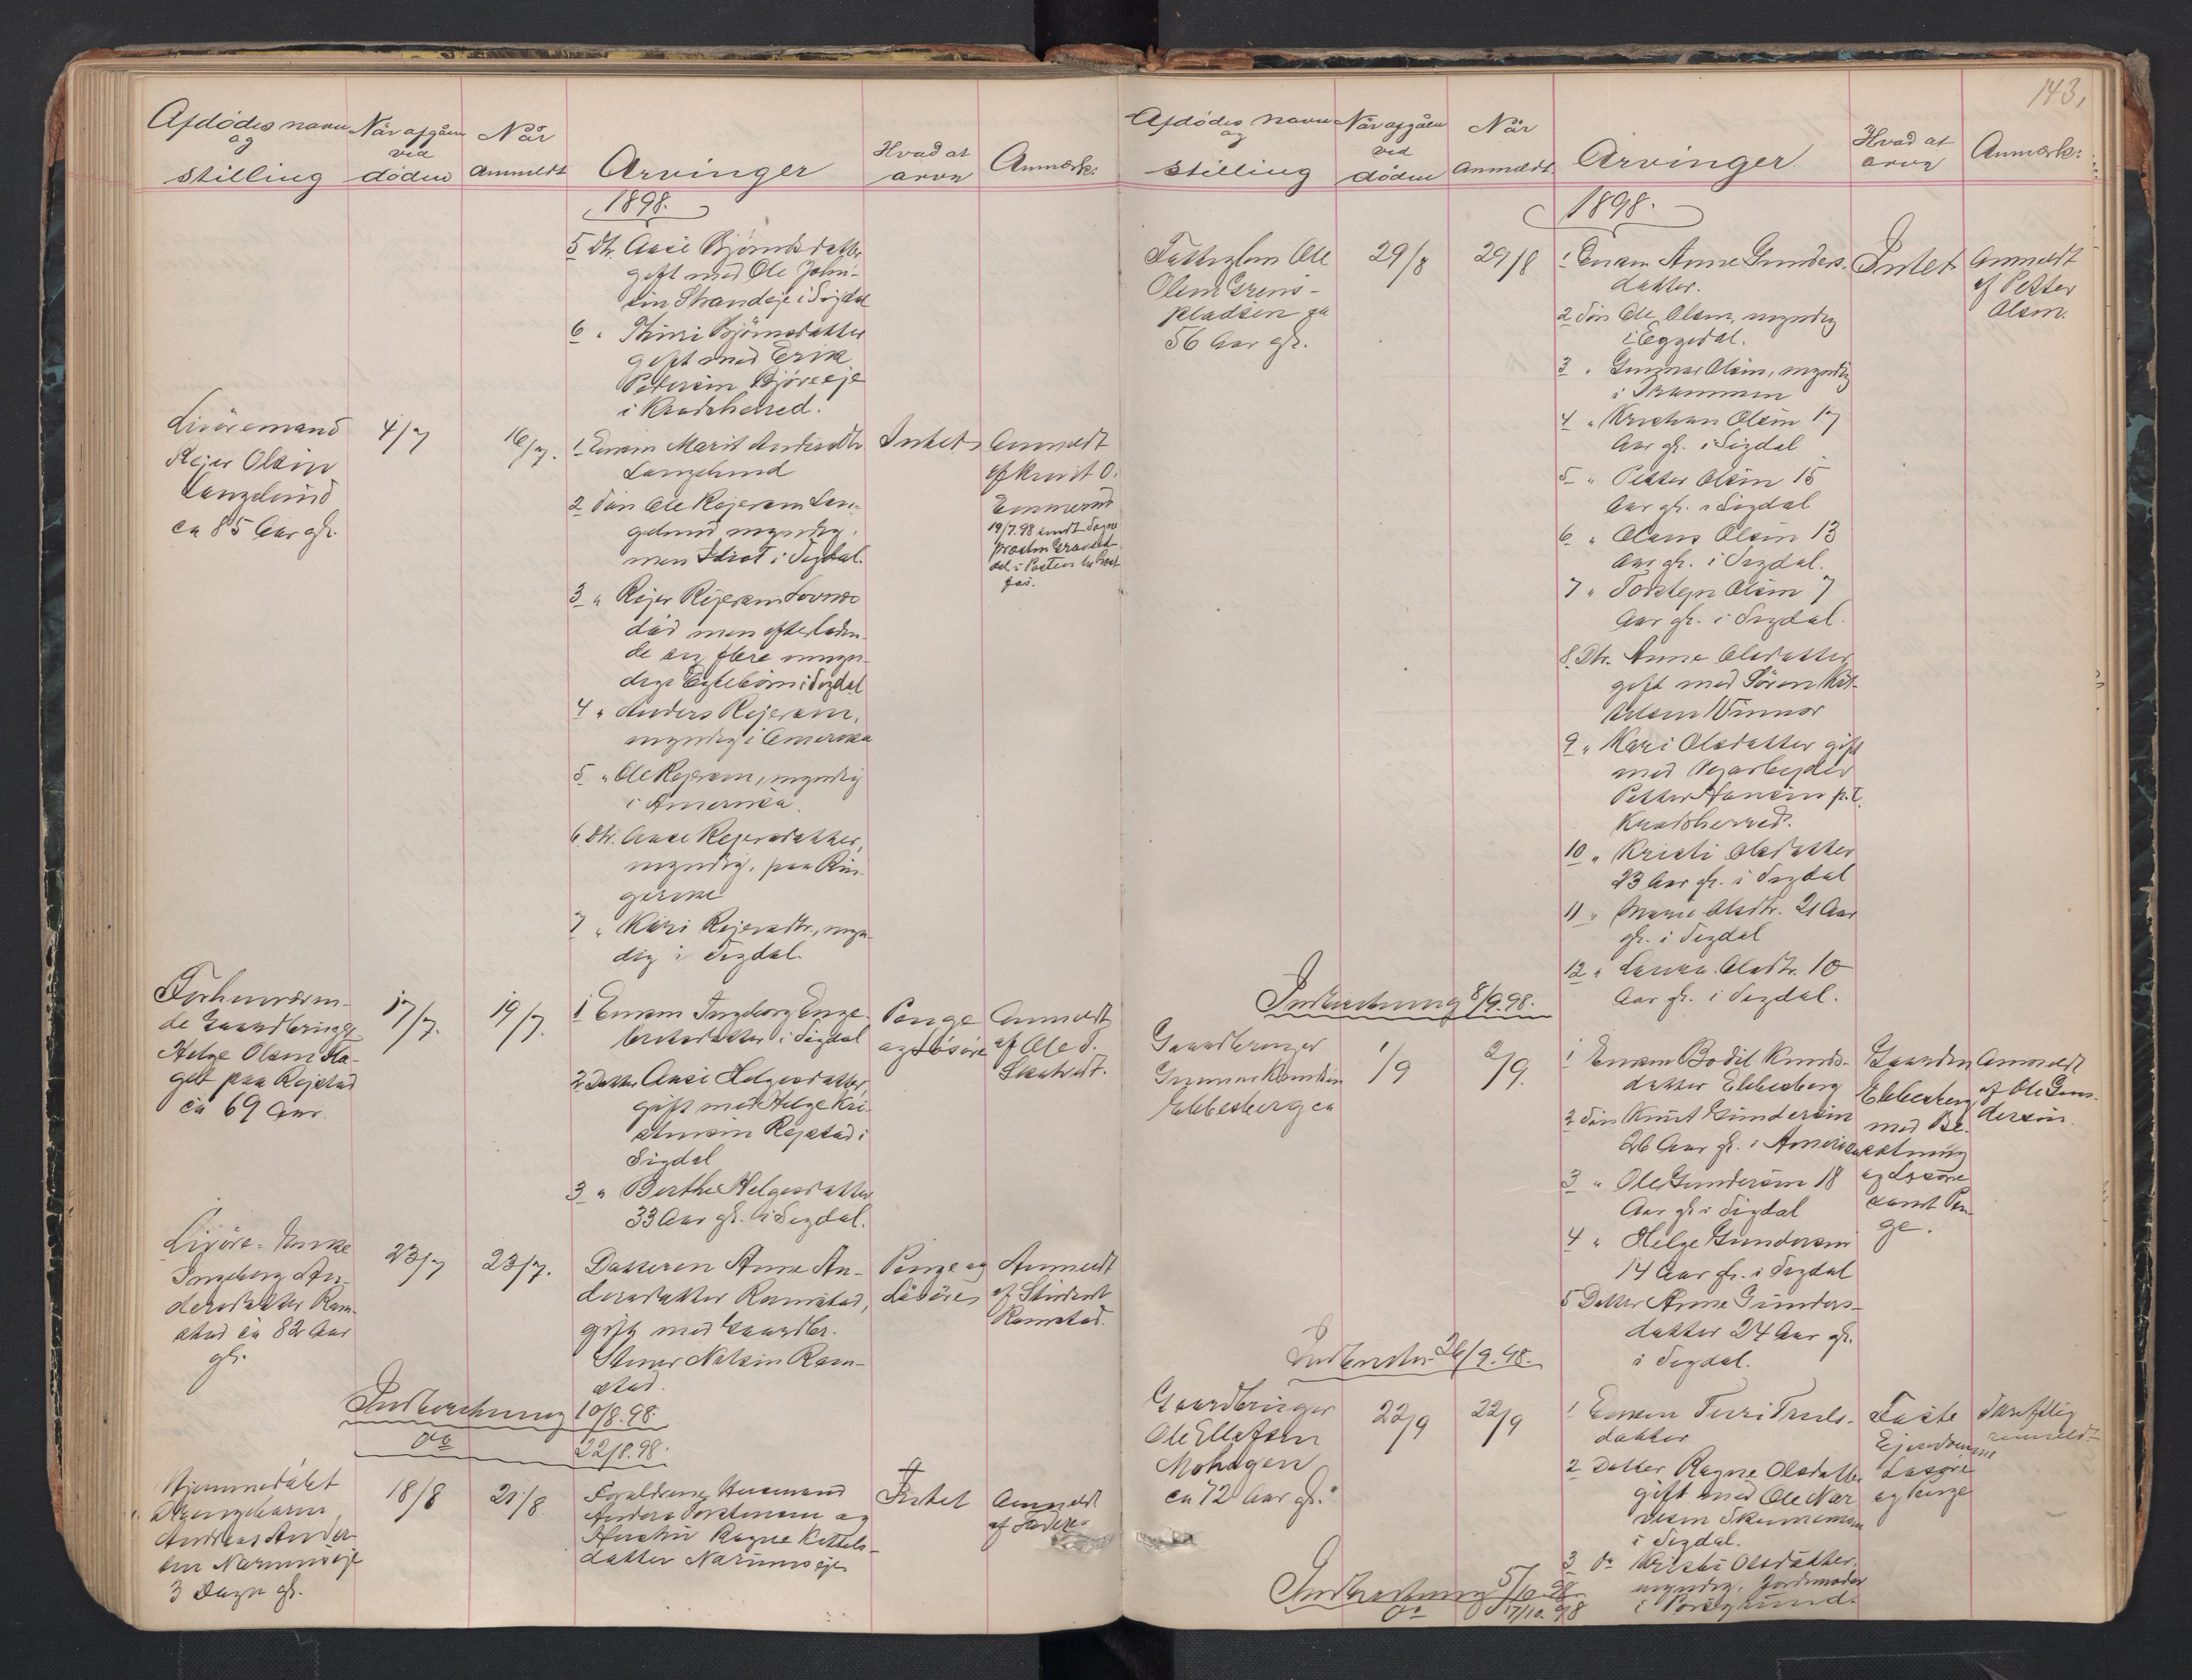 Afdødes navn
og
stilling
Når afgåen
ved
døden
Når
Anmeldt
Arvinger
Hvad at
arve
Anmærk:
1898.
5 Dtr. Aase Bjørnsdatter
gift med Ole John-
sen Strandeje i Sigdal
6 " Thuri Bjørnsdatter
gift med Erik
Petersen Bjøreeje
i Krødsherred.
Livøremand
Rejer Olsen
Langelund
ca 85 Aar gl.
4/7
16/7.
1 Enken Marit Andersdtr
Langelund
2 Søn Ole Rejersen Lan-
gelund, myndig,
men Idiot i Sigdal.
3 " Rejer Rejersen
død men efterladen-
de sig flere myn-
dige Egtebørn i Sigdal
4 " Anders Rejersen,
myndig i Amerika
5 " Ole Rejersen, myndig
i Amerika.
6. Dtr. Aase Rejersdatter,
myndig, paa Rin-
gerike
7 " Kari Rejersdtr., myn-
dig i Sigdal.
Intet
Anmeldt
af Knut O.
19/7.98 sendt Sogne
Forhenværen-
de Gaardbruger
Helge Olsen Ha-
get paa Rejstad
ca 69 Aar.
17/7.
19/7.
1 Enken Ingeborg Enge-
bretsdatter i Sigdal
2 Datter Aase Helgesdatter,
gift med Helge Kri-
stensen Rejstad i
Sigdal
3 " Berthe Helgesdatter
33 Aar gl. i Sigdal.
Penge
og Løsøre
Anmeldt
af Ole O.
Skatvedt.
Livøre-Enke
Ingeborg An-
dersdatter Ram-
stad ca 82 Aar
gl.
23/7
23/7.
Datteren Anne An-
dersdatter Ramstad,
gift med Gaardbr.
Stener Nelsen Ram-
stad.
Penge og
Løsøre
Anmeldt
af Student
Ramstad.
Indberetning 10/8.98.
do 22/8.98.
Hjemmedøbt
Drengebarn
Andreas Ander-
sen Narumseje
3 Dage gl.
18/8
21/8.
Forældrene Husmand
Anders Torstensen og
Hustru Ragne Kittels-
datter Narumseje
Intet
Anmeldt
af Faderen
143,
Afdødes navn
og
stilling
Når afgåen
ved
døden
Når
Anmeldt.
Arvinger
Hvad at
arve
Anmærk:
1898.
Fattiglem Ole
Olsen Grens-
pladsen ca
56 Aar gl.
29/8
29/8
1 Enken Anne Gunders-
datter.
2 Søn Ole Olsen, myndig
i Eggedal.
3 " Gunnar Olsen, myndig
i Drammen
4 " Kristian Olsen 17
Aar gl. i Sigdal
5 " Petter Olsen 15
Aar gl. i Sigdal
6 " Olaus Olsen 13
Aar gl. i Sigdal.
7 " Torstejn Olsen 7
Aar gl. i Sigdal.
8. Dtr. Anne Olsdatter
gift med Søren Kit-
telsen
9 " Kari Olsdatter gift
med Vejarbejder
Petter Hansen p.t.
Krødsherred.
10 " Kristi Olsdatter
23 Aar gl. i Sigdal
11 " Marie Olsdtr. 21 Aar
gl. i Sigdal
12 " Laura Olsdtr. 10
Aar gl. i Sigdal.
Intet
Anmeldt
af Petter
Olsen.
Indberetning 8/9.98.
Gaardbruger
Gunnar Knudsen
Ebbesberg ca
1/9
2/9.
1 Enken Bodil Knuds-
datter Ebbesberg
2 Søn Knut Gundersen
26 Aar gl. i Amerika
3 " Ole Gundersen 18
Aar gl. i Sigdal
4 " Helge Gundersen
14 Aar gl. i Sigdal
5 Datter Anne Gunders-
datter 24 Aar gl.
i Sigdal.
Gaarden
Ebbesberg
med Be-
sætning
og Løsøre
samt Pen-
ge.
Anmeldt
af Ole Gun-
dersen.
Indberetn. 26/9.98.
Gaardbruger
Ole Ellefsen
Mohagen
ca 72 Aar gl.
22/9
22/9
1 Enken Turi Truls-
datter
2 Datter Ragne Olsdatter
gift med Ole Nar-
vesen
i Sigdal.
3 do Kristi Olsdatter,
myndig, Jordmoder
i Porsgrund.
Faste
Ejendomme
Løsøre
og Penge
Skriftlig
anmeldt
Indberetning 5/10.98
do 17/10.98